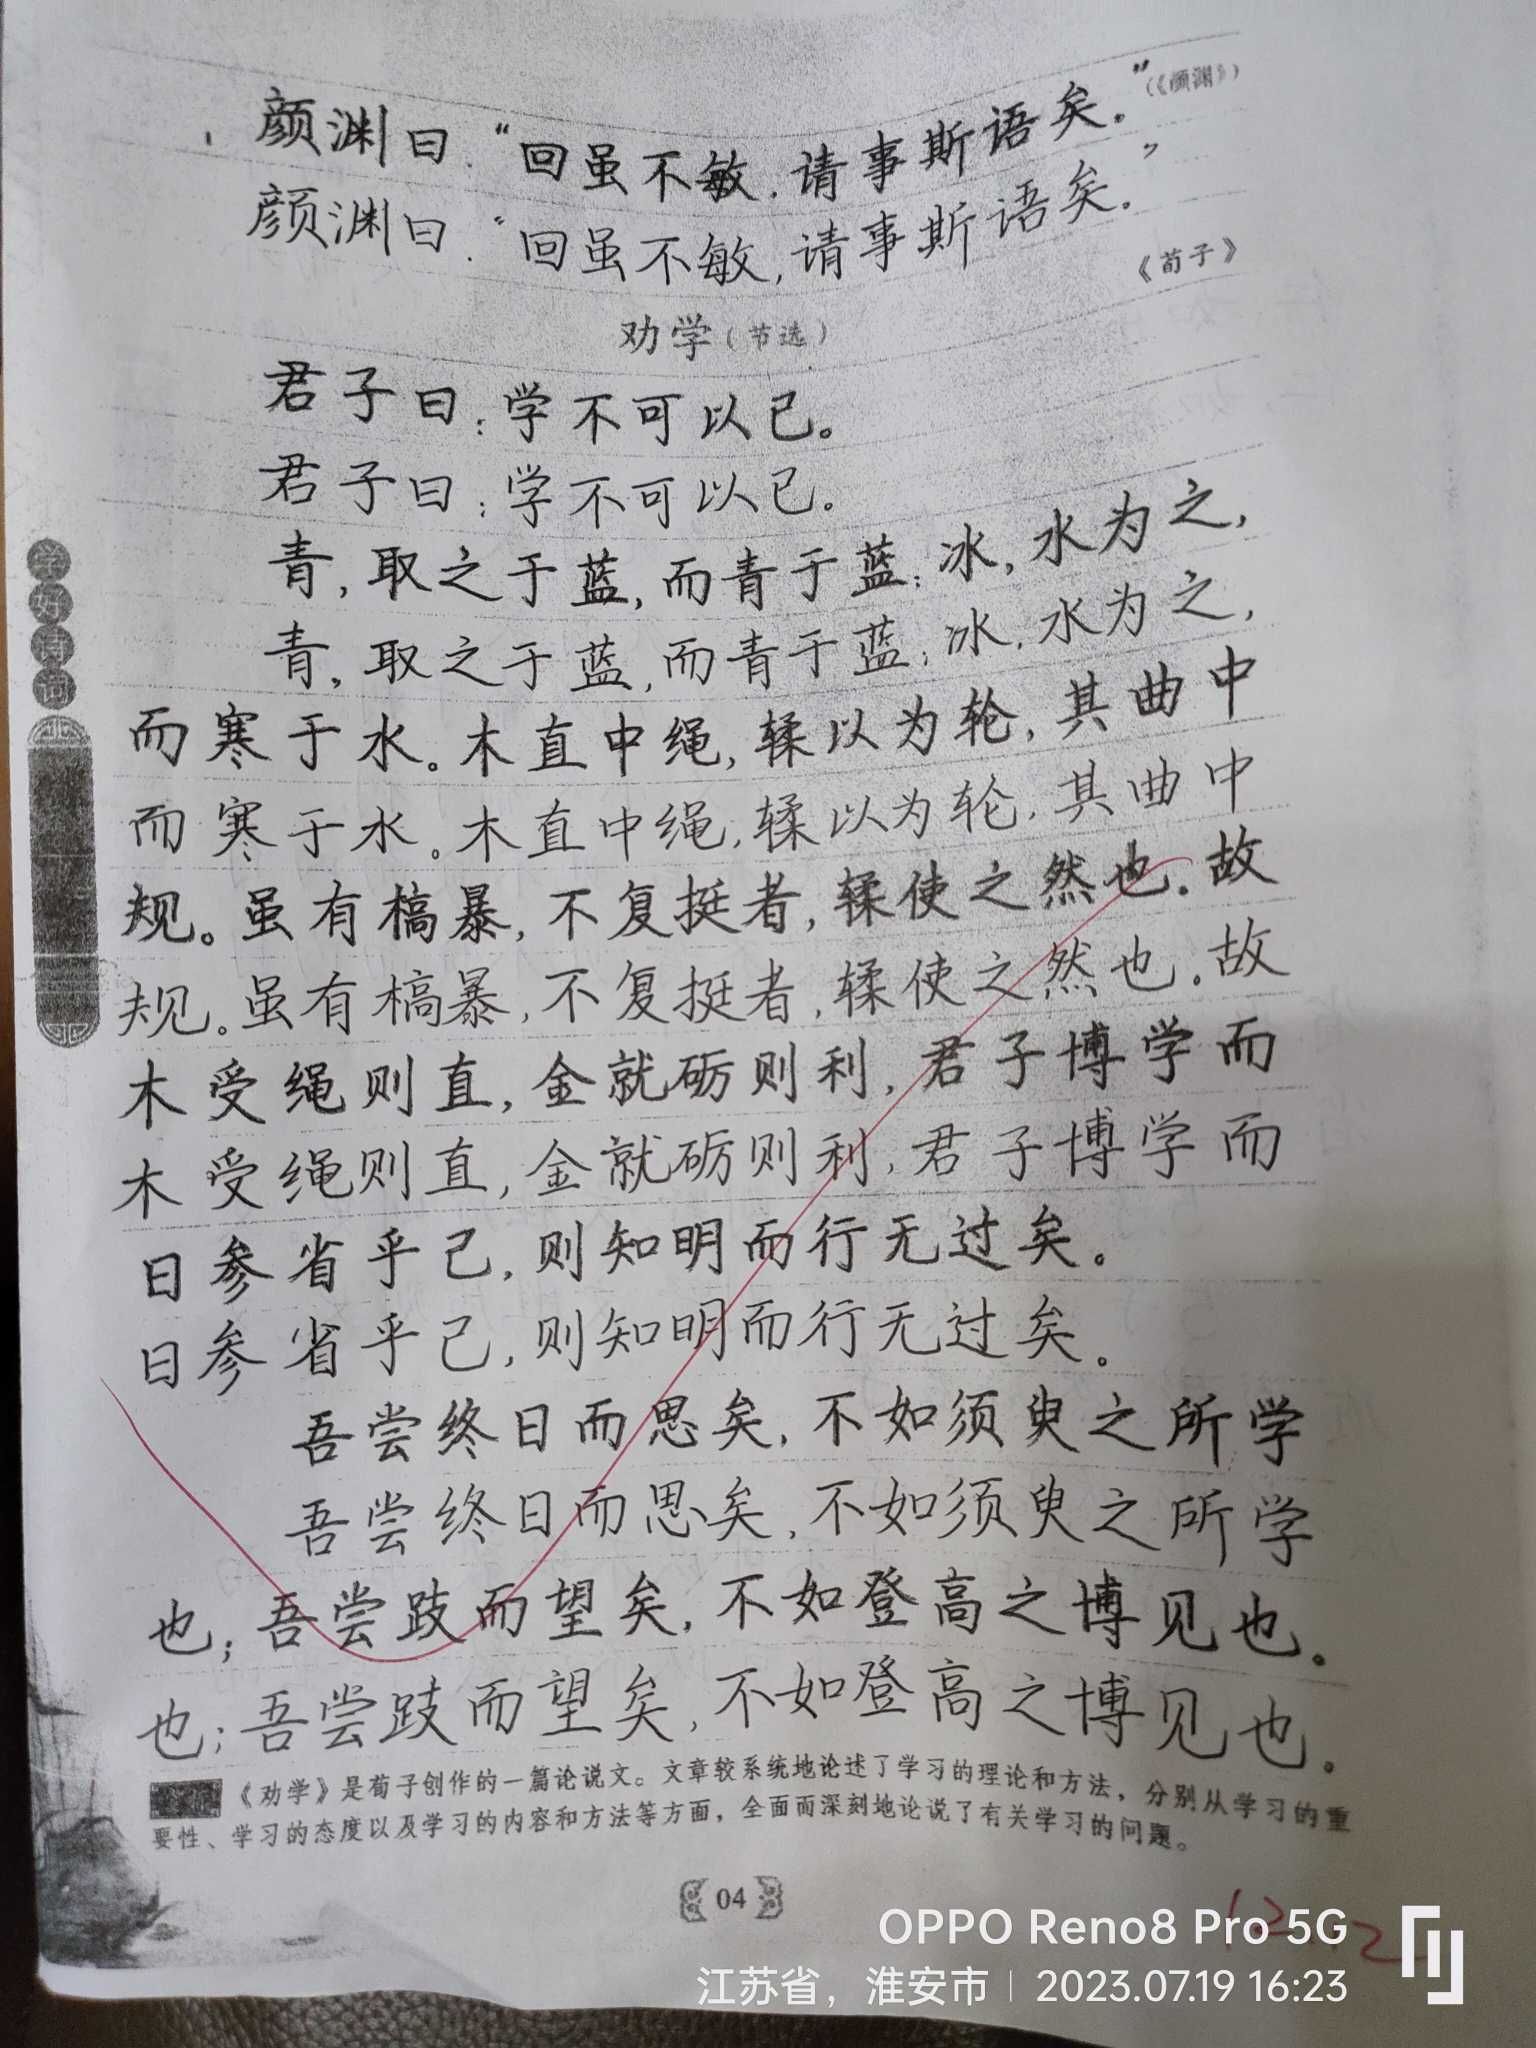 颜渊曰：“回虽不敏，请事斯语矣。”（《颜渊》）
颜渊曰：“回虽不敏，请事斯语矣。”
《荀子》
劝学（节选）
君子曰：学不可以已。
君子曰：学不可以已。
青，取之于蓝，而青于蓝；冰，水为之，
青，取之于蓝，而青于蓝；冰，水为之，
而寒于水。木直中绳，輮以为轮，其曲中
而寒于水。木直中绳，輮以为轮，其曲中
规。虽有槁暴，不复挺者，輮使之然也。故
规。虽有槁暴，不复挺者，輮使之然也。故
木受绳则直，金就砺则利，君子博学而
木受绳则直，金就砺则利，君子博学而
日参省乎己，则知明而行无过矣。
日参省乎己，则知明而行无过矣。
吾尝终日而思矣，不如须臾之所学
吾尝终日而思矣，不如须臾之所学
也；吾尝跂而望矣，不如登高之博见也。
也；吾尝跂而望矣，不如登高之博见也。
《劝学》是荀子创作的一篇论说文。文章较系统地论述了学习的理论和方法，分别从学习的重
要性、学习的态度以及学习的内容和方法等方面，全面而深刻地论说了有关学习的问题。
04
学好诗词
OPPO Reno8 Pro 5G
江苏省，淮安市 | 2023.07.19 16:23